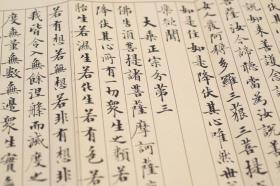 如來善護念
菩薩汝今諦聽當為汝說善
女人發阿耨多羅三藐三菩提
如是住如是降伏其心唯然世
樂欲聞
大乘正宗分第三
佛告須菩提諸菩薩摩訶薩
降伏其心所有一切眾生之類若
胎生若濕生若化生若有色若
若有想若無想若非有想非
我皆令入無餘涅槃而滅度之
度無量無數無邊眾生實